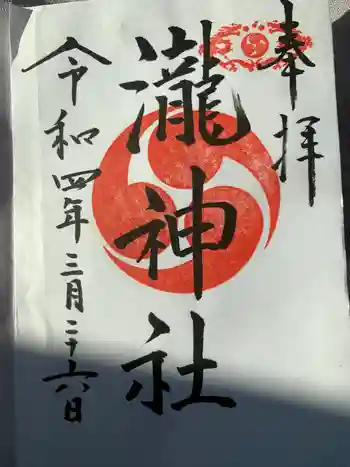 奉拝
瀧神社
令和四年三月二十六日